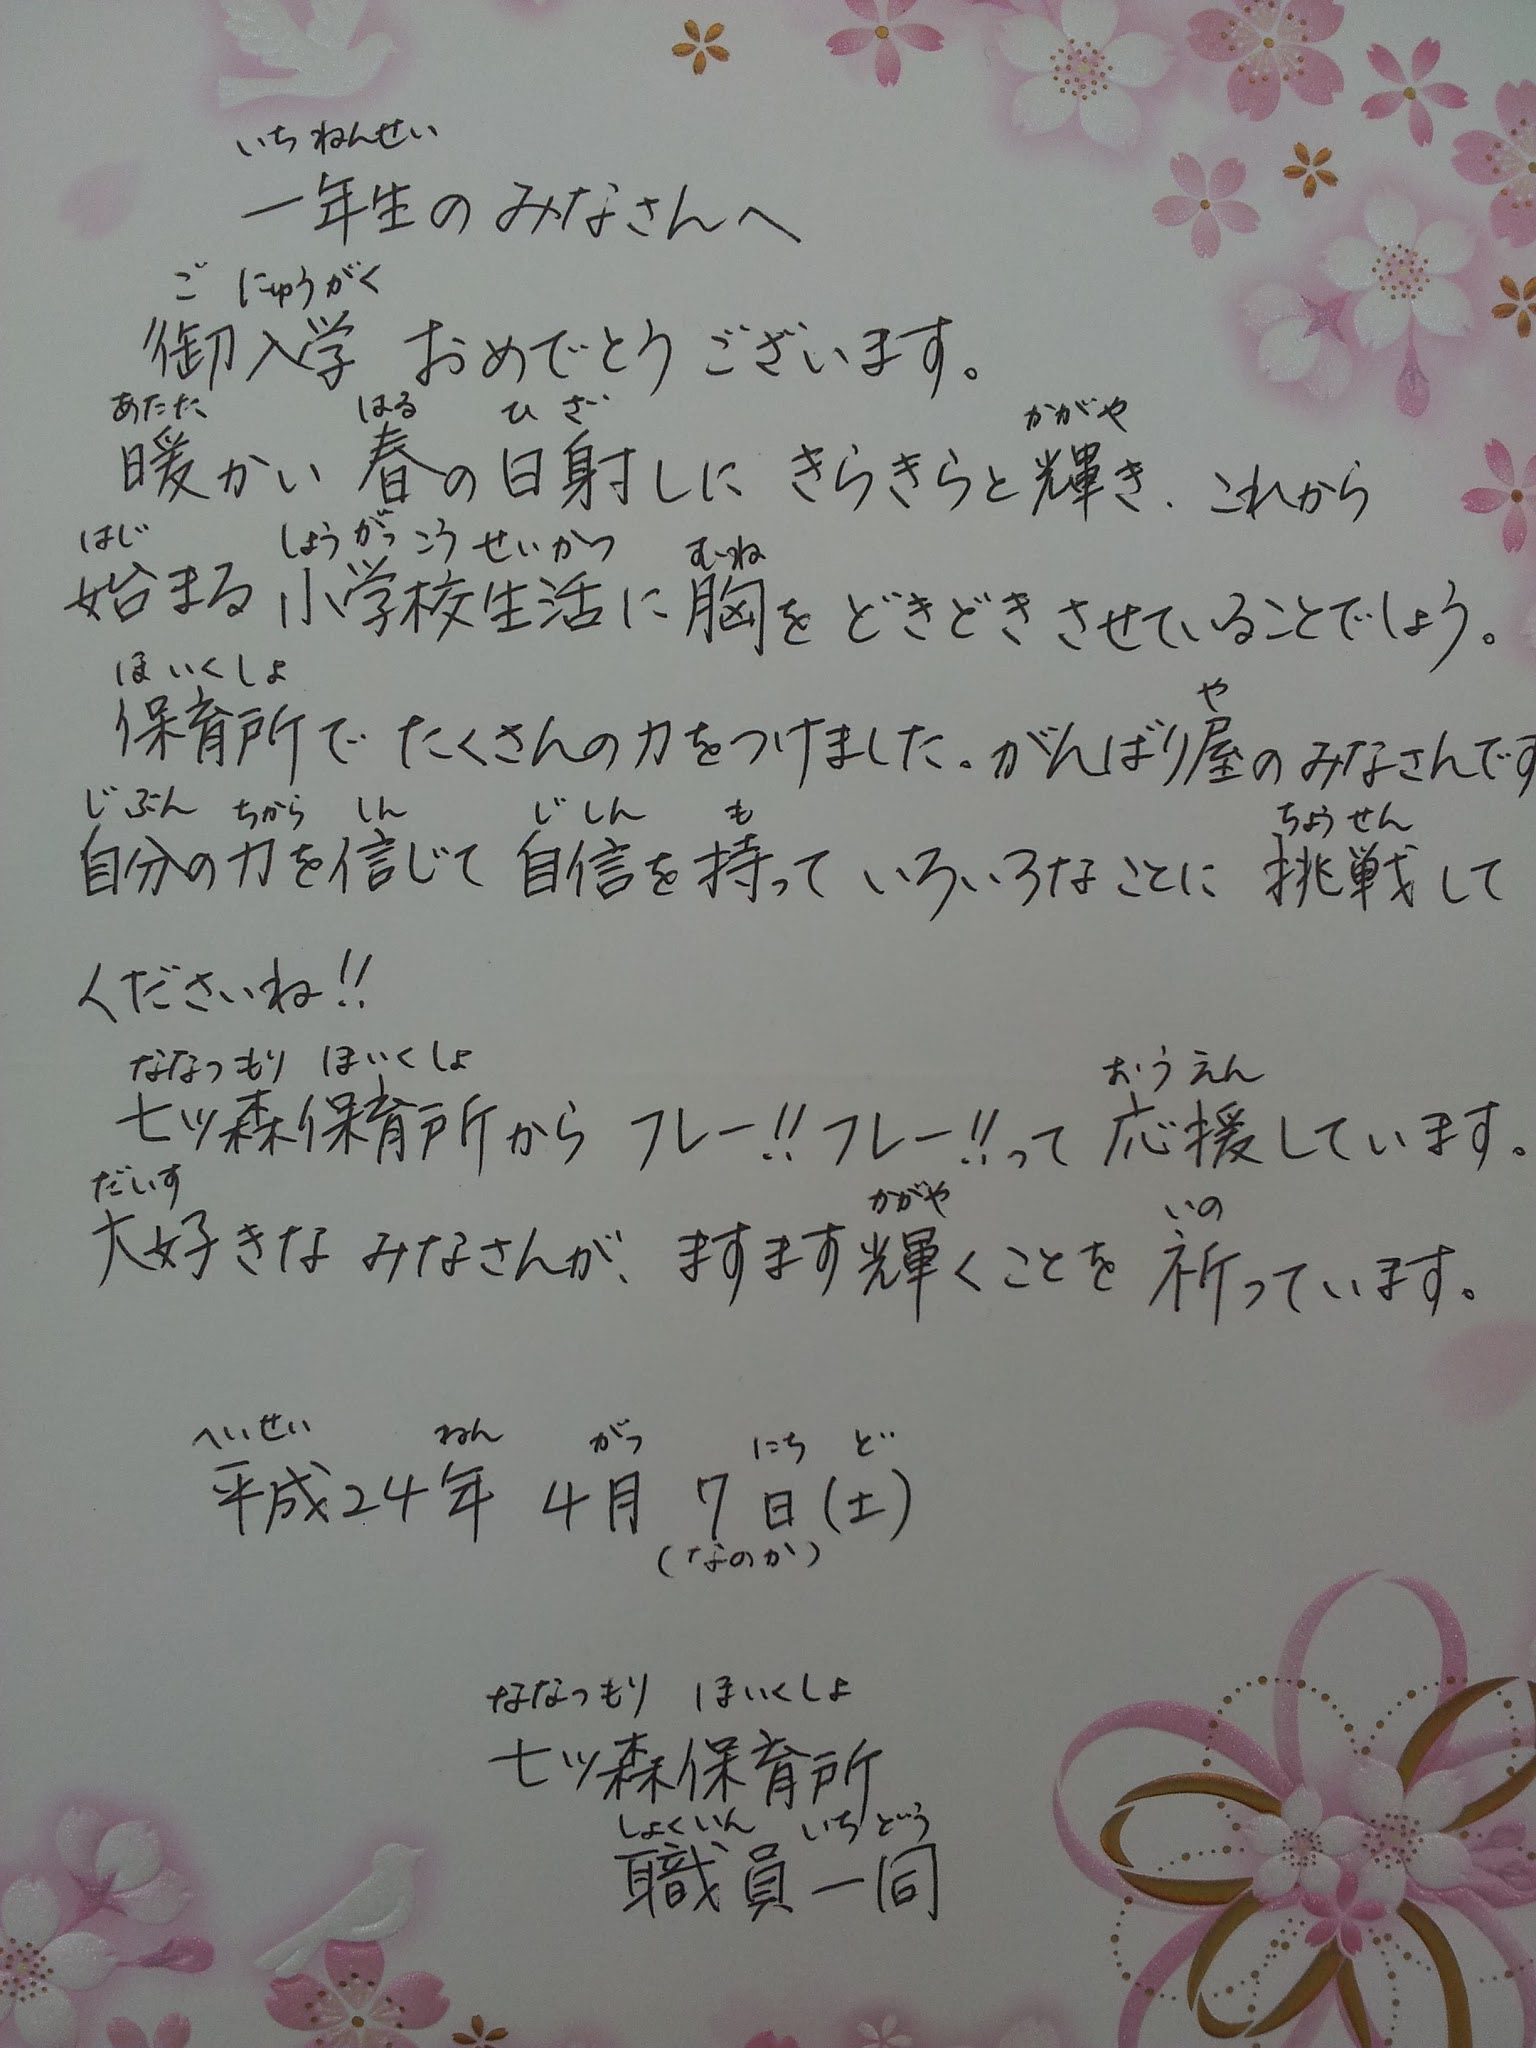 いちねんせい
一年生のみなさんへ
ご にゅうがく
御入学 おめでとうございます。
あたた はる ひ ざ かがや
暖かい 春の日射しに きらきらと輝き、これから
はじ しょうがっこうせいかつ むね
始まる 小学校生活に胸を どきどきさせていることでしょう。
ほいくしょ や
保育所で たくさんの力をつけました。がんばり屋のみなさんです
じぶん ちから しん じしん も ちょうせん
自分の力を信じて 自信を持って いろいろなことに 挑戦して
くださいね!!
ななつもり ほいくしょ おうえん
七ツ森保育所から フレー!!フレー!!って 応援しています。
だいす かがや いの
大好きな みなさんが、ますます輝くことを 祈っています。
へいせい ねん がつ にち ど
平成24年 4月 7日(土)
(なのか)
ななつもり ほいくしょ
七ツ森保育所
しょくいん いちどう
職員一同